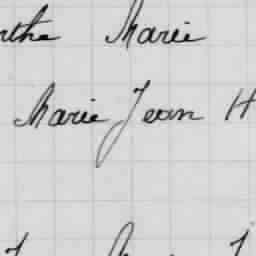 rthe Marie
Marie Jean H